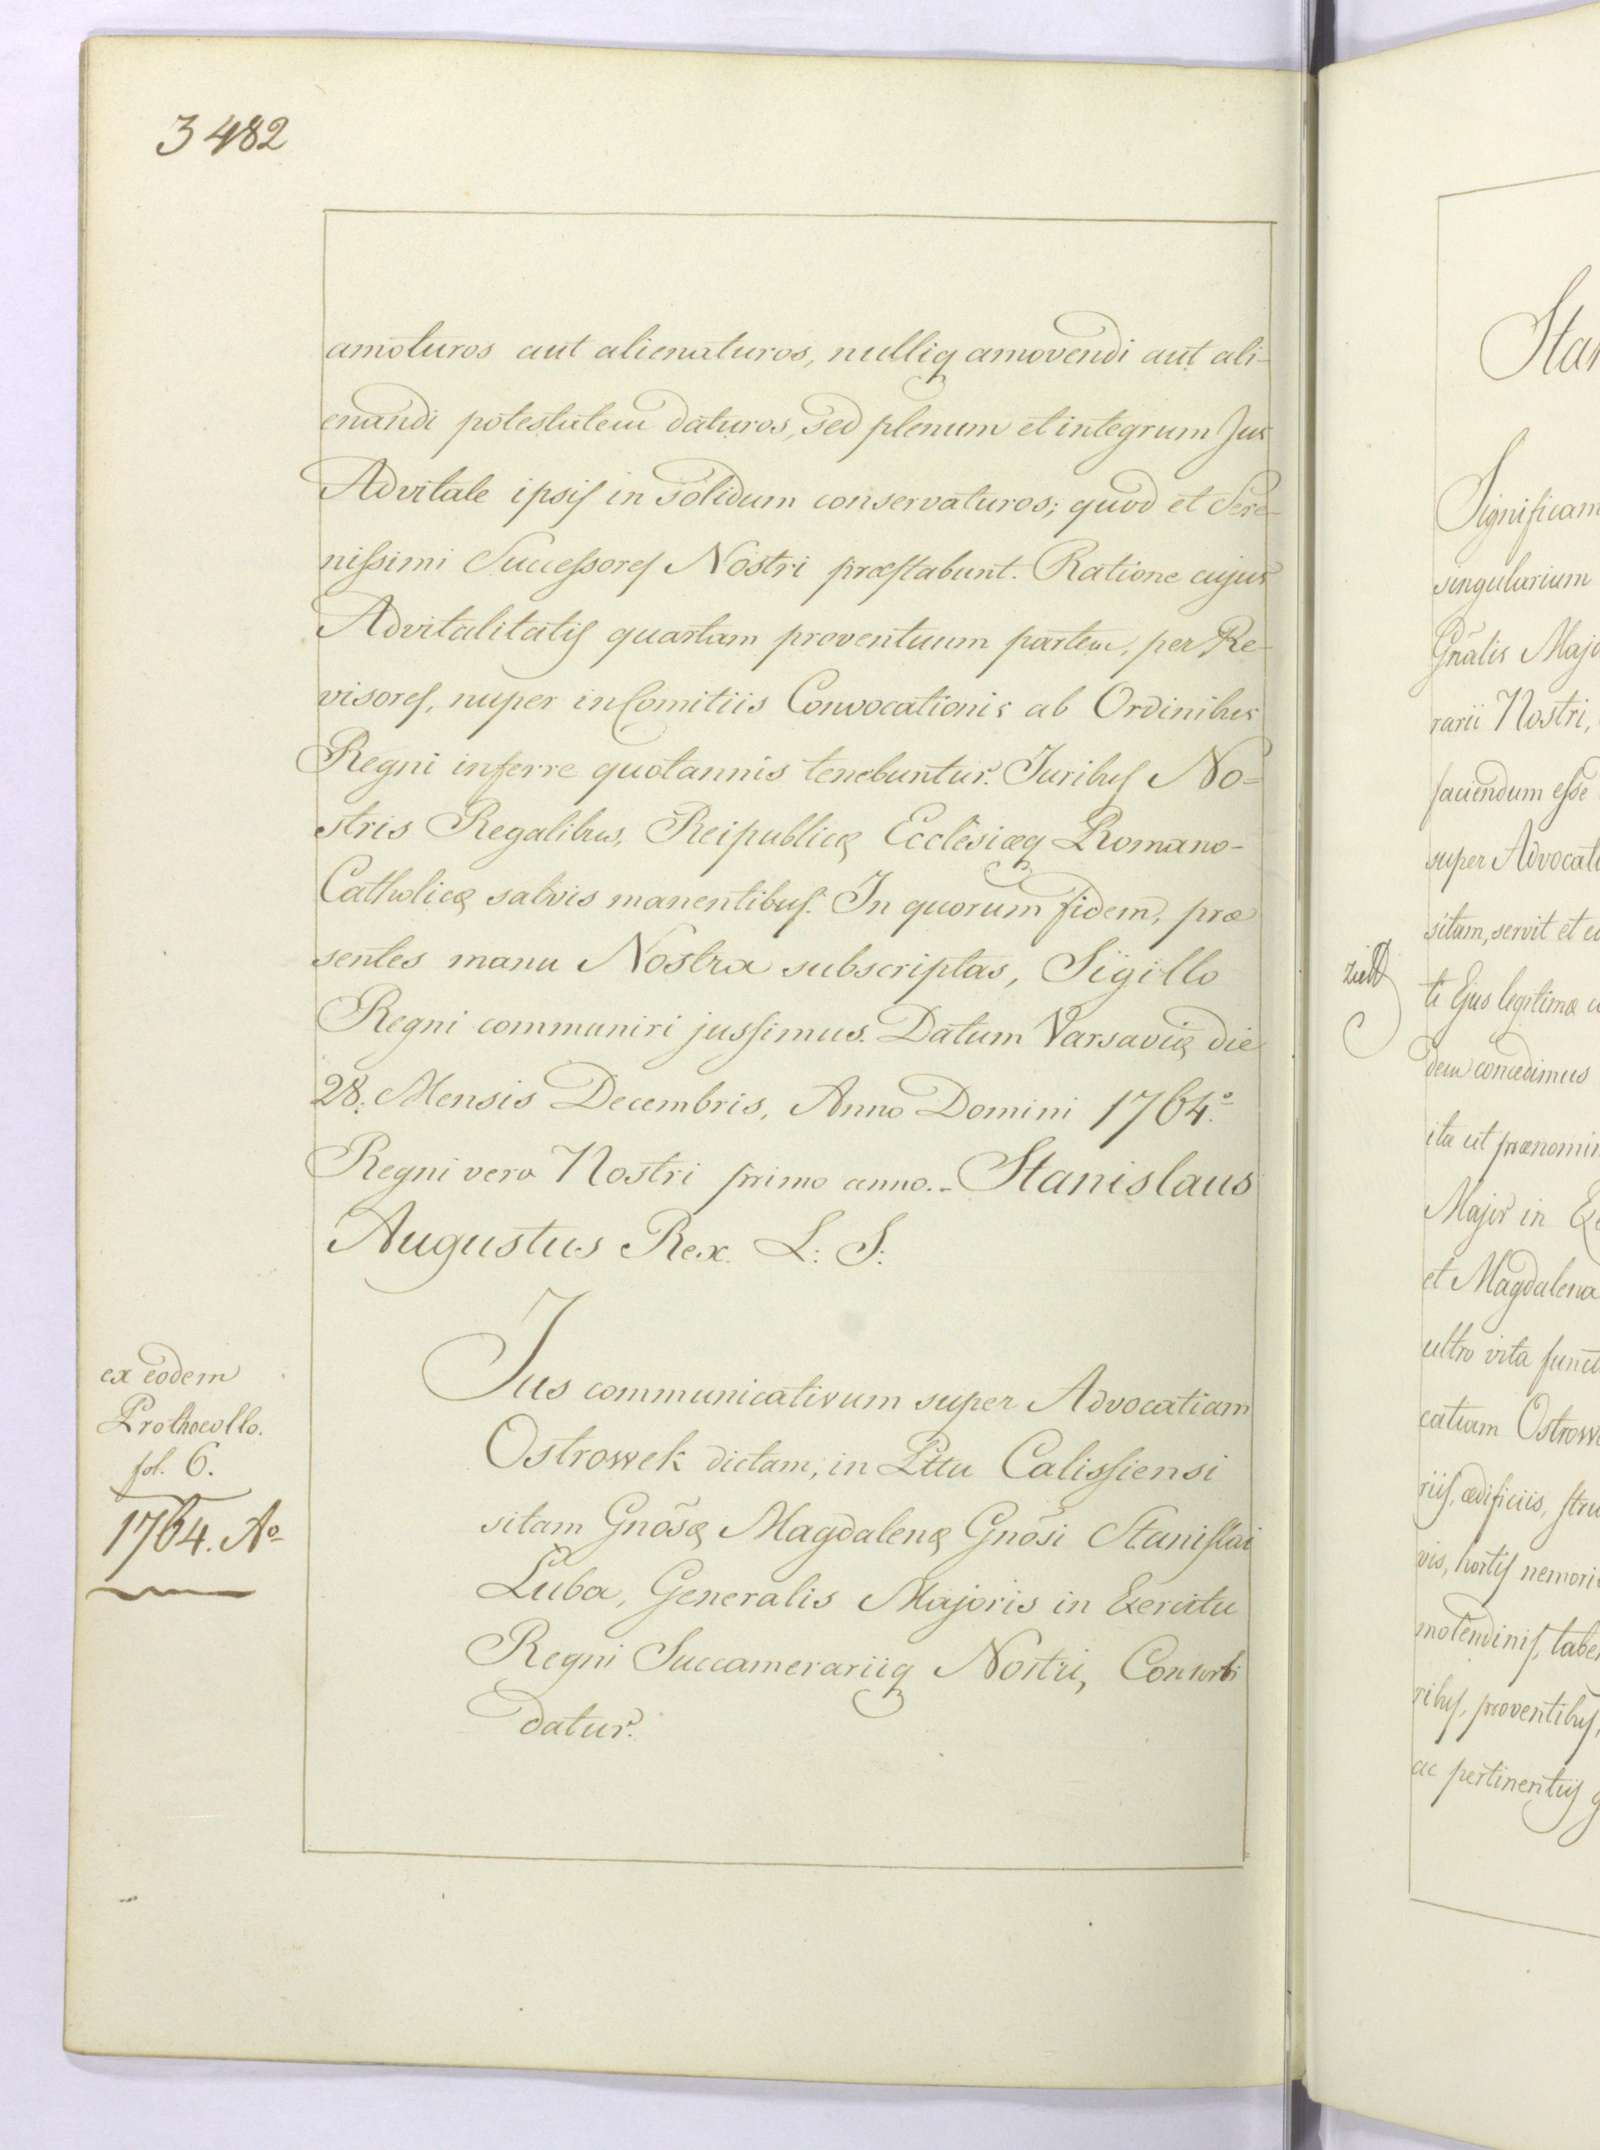 3482
amoturos aut alienaturos, nulliq amovendi aut ali-
enandi potestatem daturos, sed plenum et integrum Jus
Advitale ipsis in solidum conservaturos; quod et Sere-
nissimi Successores Nostri præstabunt. Ratione cujus
Advitalitatis quartam proventuum partem, per Re-
visores, nuper in Comitiis Convocationis ab Ordinibus
Regni inferre quotannis tenebuntur. Juribus No=
stris Regalibus, Reipublicę Ecclesiæq Romano-
Catholicę salvis manentibus. In quorum fidem, præ
sentes manu Nostra subscriptas, Sigillo
Regni communiri jussimus. Datum Varsavię die
28. Mensis Decembris, Anno Domini 1764.º
Regni vero Nostri primo anno.- Stanislaus
Augustus Rex. L: S:
ex eodem
Prothocollo.
fol. 6.
1764. Aº
Jus communicativum super Advocatiam
Ostrowek dictam, in Pttu Calissiensi
sitam Gnõsę Magdalenę Gnõsi Stanislai
Luba, Generalis Majoris in Exercitu
Regni Succamerariiq Nostri, Consorti
datur.
Significam
singularium
Gnãlis Majo
rarii Nostri,
faciendum esse
super Advocati
sitam, servit et
ti Ejus legitimæ
dem concedimus
ita ut prænomin
Major in
et Magdalena
ultro vita funct
catiam Ostrow
riis, ædificiis, stru
vis, hortis nemori
molendinis, taber
ribus, proventibus,
ac pertinentiis